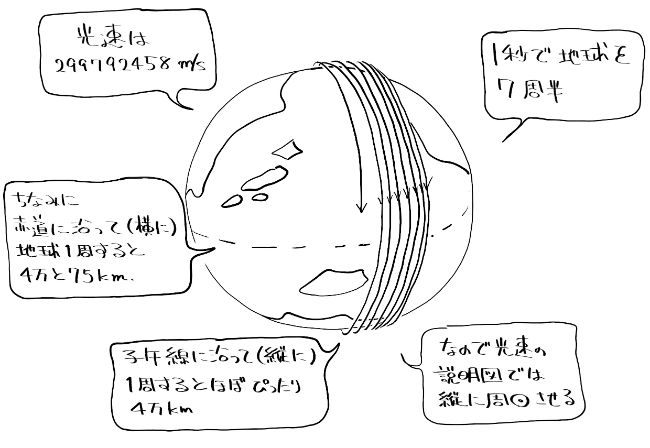 光速は
299792458 m/s
1秒で地球を
7周半
ちなみに
赤道に沿って(横に)
地球1周すると
4万と75km.
子午線に沿って(縦に)
1周するとほぼぴったり
4万km
なので光速の
説明図では
縦に周回させる